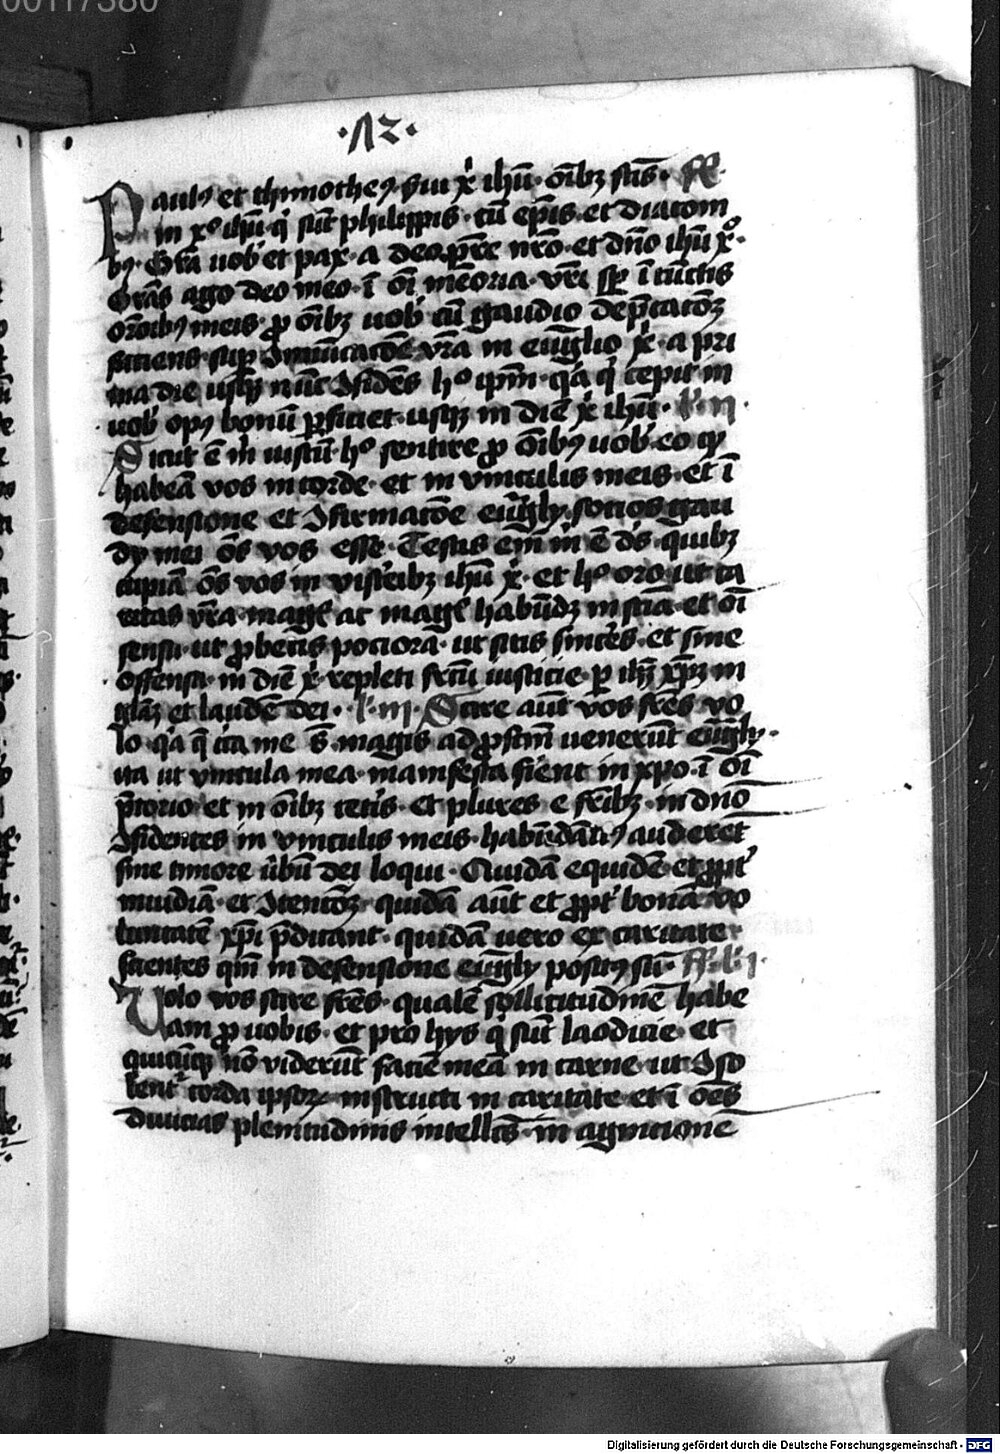 00117380
·Λ2·
Paulꝰ et thimotheꝰ s̄ui xͥ ihū · oībꝫ sc̄is · ff
in xͦ ihū qͥ sūt philippis · cū ep̄is · et diacom
bꝫ · Gr̄a uob̄ et pax · a deo pr̄e nr̄o · et dn̄o ihū xͦ ·
Grās ago deo meo · ī oī mēoria · vr̄i sꝑ ī cūctis
or̄oībꝰ meis ꝓ oībꝫ uob̄ cū gaudio dep̄cacōꝫ
faciens · sup ꝯmūicacōe vr̄a in euāglio xͥ · a pri
ma die usqꝫ nūc ꝯfidēs hͦ ip̄m · qͥa qͥ cepit in
uob̄ opꝰ bonū ꝑficiet · usqꝫ in diē xͥ ihū · l̄ · ii ·
Sicut ē m̄ iustū · hͦ sentire ꝓ oībꝰ uob̄ · eo qͥ
habeā vos in corde · et in vinculis meis · et ī
defensione et ꝯfirmacōe euāgly · socios gau
dy mei ōs vos esse · Testis em̄ m̄ ē d̄s · quibꝫ
cupiā ōs vos in visceībꝫ ihū xͥ · et hͦ oro ut ca
ritas vr̄a · maḡ ac maḡ habūdꝫ in sciā · et oī
sensu · ut ꝓbetis pociora · ut sitis sincēs · et sine
offensa · in diē xͥ · repleti frc̄u iusticie · ꝑ ihꝫ xp̄ꝫ in
glāꝫ et laudē dei · · l̄ · iii · Scire aūt vos fr̄es vo
lo · qͥa q̄ cīa me s̄ · magis ad ꝓfc̄m venerūt euāgly ·
ita ut vincula mea · manifesta fient in xpo · ī oī
p̄torio · et in oībꝫ cetis · et plures e fr̄ibꝫ · in dn̄o
ꝯfidentes in vinculis meis · habūdāciꝰ auderēt
sine timore ūbū dei loqui · Quidā equidē · et ꝓpt̄
inuidiā · et ꝯtencōꝫ · quidā aūt et ꝓpt̄ bonā vo
luntatē xp̄i p̄dicant · quidā uero ex caritate ·
scientes qm̄ in defensione euāgly positꝰ sū · ff · l̄ · j ·
Uolo vos scire fr̄es · qualē sollicitudinē habe
am ꝓ uobis · et pro hys qͥ sūt laodicie · et
quicūqꝫ nō viderūt faciē meā in carne · ut ꝯso
lent̄ corda ipsoꝝ · instructi in caritate · et ī oēs
diuicias plenitudinis intellc̄s · in agnicionē
Digitalisierung gefördert durch die Deutsche Forschungsgemeinschaft - DFG